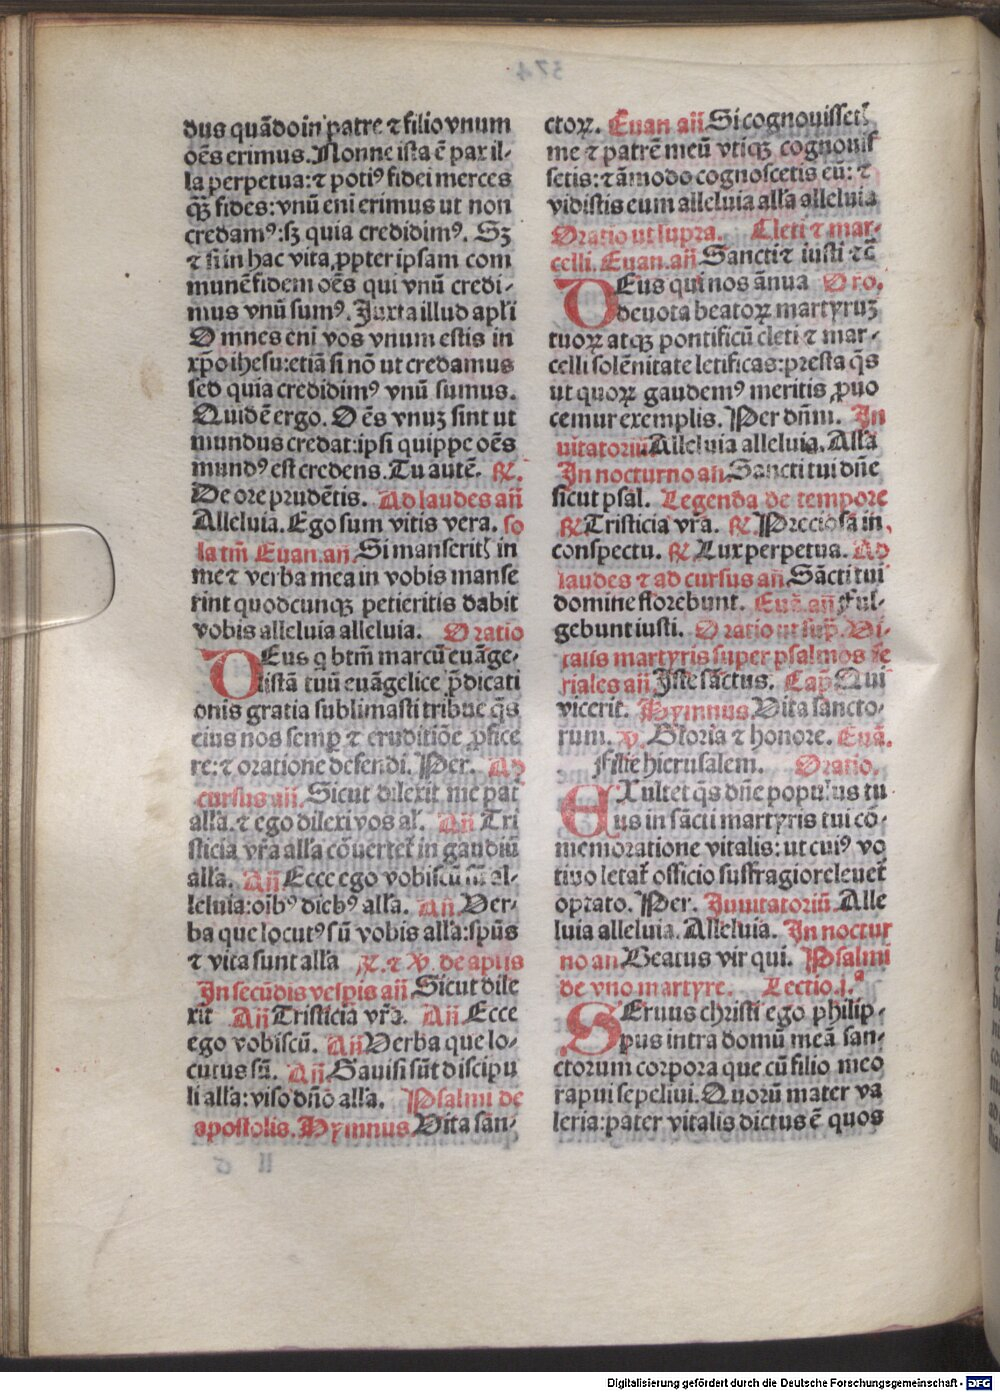 dus quādo in patre ⁊ filio vnum
oēs erimus. Nonne ista ē pax il-
la perpetua: ⁊ potiꝰ fidei merces
qꝫ̄ fides: vnū eni erimus ut non
credamꝰ: sꝫ quia credidimꝰ. Sꝫ
⁊ si in hac vita ꝓpter ipsam com
munē fidem oēs qui vnū credi-
mus vnū sumꝰ. Juxta illud apli
Omnes eni vos vnum estis in
xp̄o ihesu: etiā si nō ut credamus
sed quia credidimꝰ vnū sumus.
Quid ē ergo. O ēs vnuꝫ sint ut
mundus credat: ipsi quippe oēs
mundꝰ est credens. Tu autē. ℟.
De ore prudētis. Ad laudes añ
Alleluia. Ego sum vitis vera. so
la tm̄ Euan. añ. Si manserit̄ in
me ⁊ verba mea in vobis manse
rint quodcunqꝫ petieritis dabit
vobis alleluia alleluia. Oratio
DEus q btm̄ marcū euāge-
listā tuū euāgelice p̄dicati
onis gratia sublimasti tribue q̄s
eius nos semꝑ ⁊ eruditiōe ꝓfice
re: ⁊ oratione defendi. Per. Ad
cursus añ. Sicut dilexit me pat
alla. ⁊ ego dilexi vos al. Añ Tri
sticia vr̄a alla cōuertet̄ in gaudiū
alla. Añ Ecce ego vobiscū sū al-
leluia: oibꝰ diebꝰ alla. Añ Ver-
ba que locutꝰ sū vobis alla: spūs
⁊ vita sunt alla ℟. ⁊ ℣. de aplis
In secūdis vespis añ Sicut dile
xit Añ Tristicia vr̄a. Añ Ecce
ego vobiscū. Añ Verba que lo-
cutus sū. Añ Gauisi sūt discipu
li alla: viso dn̄o alla. Psalmi de
apostolis. Hymnus. Vita sān-
ctoꝝ. Euan añ Si cognouisset̄
me ⁊ patrē meū vtiqꝫ cognouis
setis: ⁊ āmodo cognoscetis eū: ⁊
vidistis eum alleluia alla alleluia
Oratio ut supra. Cleti ⁊ mar-
celli. Euan. añ Sancti ⁊ iusti ⁊c̄
DEus qui nos ānua Oro.
deuota beatoꝝ martyruꝫ
tuoꝝ atqꝫ pontificū cleti ⁊ mar-
celli solēnitate letificas: presta q̄s
ut quoꝝ gaudemꝰ meritis ꝓuo
cemur exemplis. Per dn̄m. In
uitatoriū Alleluia alleluia. Alla
In nocturno an. Sancti tui dn̄e
sicut psal. Legenda de tempore
℟ Tristicia vr̄a. ℟ Preciosa in
conspectu. ℟ Lux perpetua. Ad
laudes ⁊ ad cursus añ Sācti tui
domine florebunt. Euā añ Ful-
gebunt iusti. Oratio ut sup̄. Vi-
talis martyris super psalmos fe
riales añ Iste sāctus. Cap̄. Qui
vicerit. Hymnus. Vita sancto-
rum. ℣. Gloria ⁊ honore. Euā.
Filie hierusalem. Oratio.
EXultet q̄s dn̄e populus tu
us in sacti martyris tui cō-
memoratione vitalis: ut cuiꝰ vo
tiuo letat̄ officio suffragio releuet̄
optato. Per. Inuitatoriū Alle
luia alleluia. Alleluia. In noctur
no an. Beatus vir qui. Psalmi
de vno martyre. Lectio. j.ª
SEruus christi ego philip-
pus intra domū meā san-
ctorum corpora que cū filio meo
rapui sepeliui. Quorū mater va
leria: pater vitalis dictus ē quos
Digitalisierung gefördert durch die Deutsche Forschungsgemeinschaft - DFG